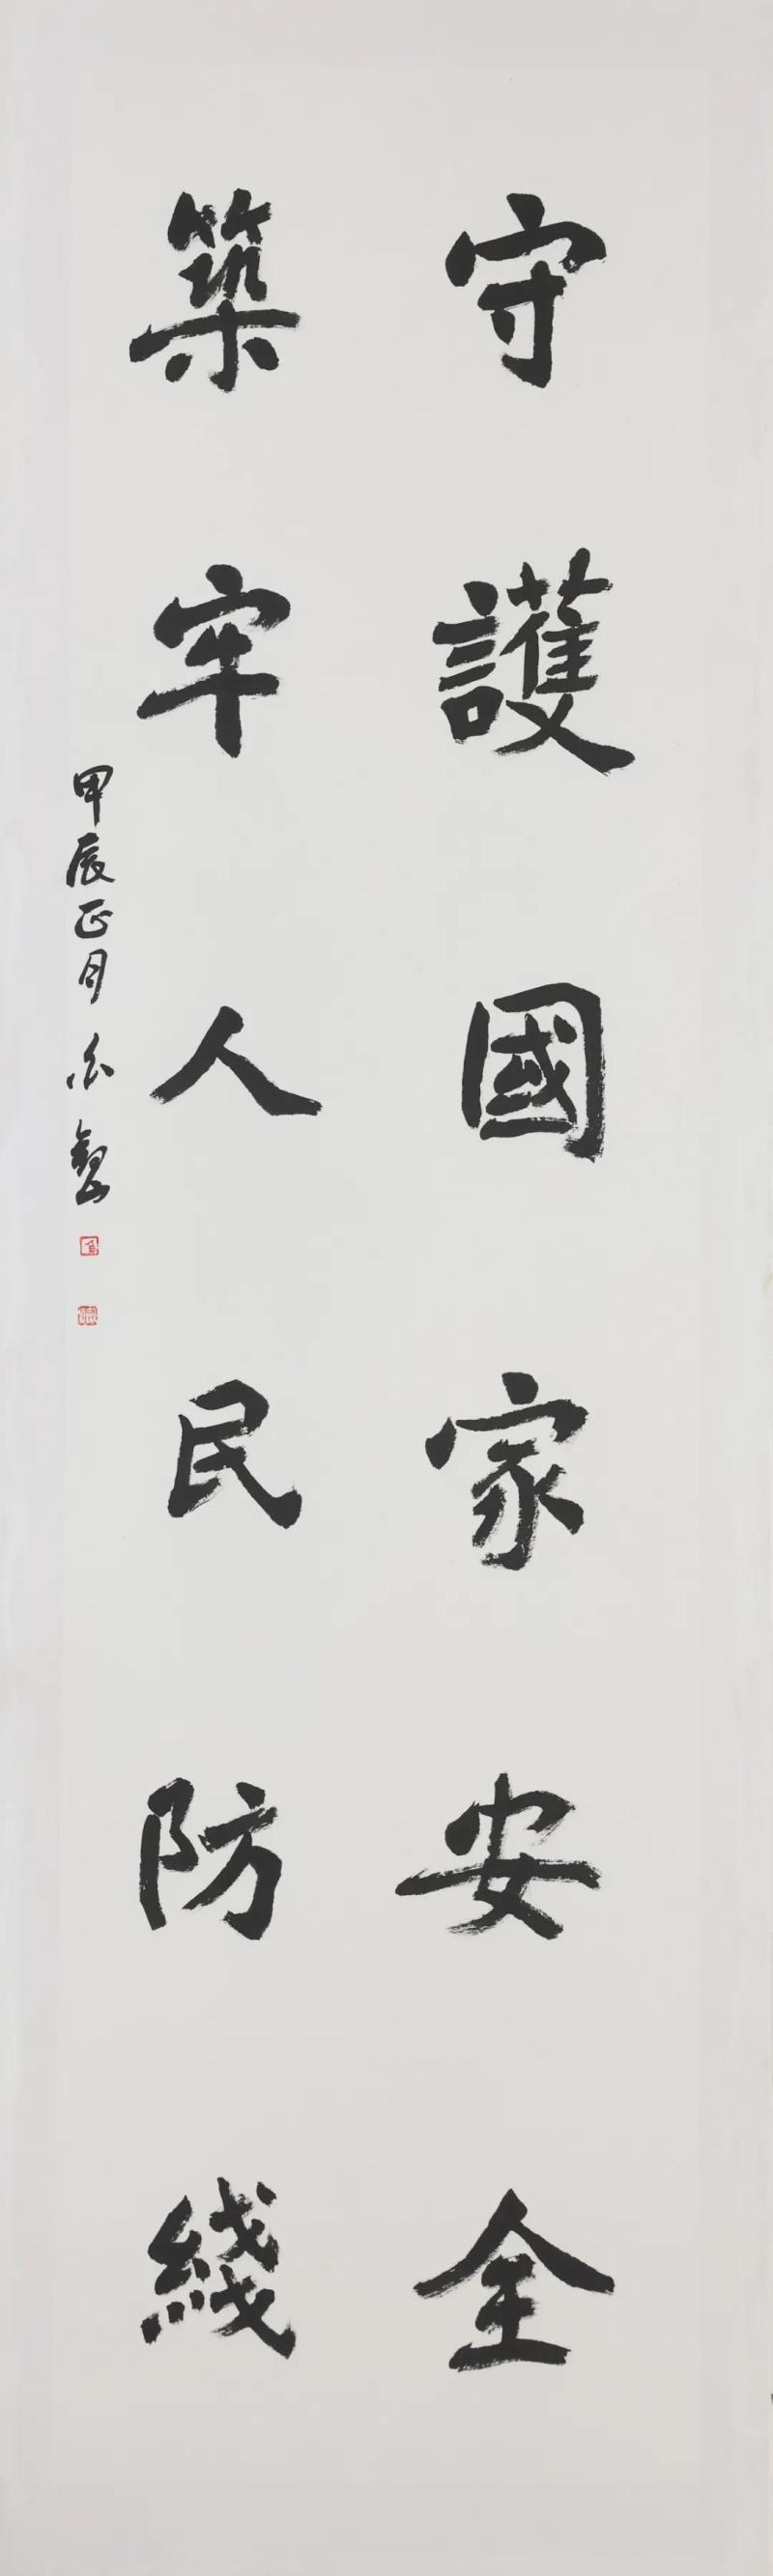 守護國家安全
築牢人民防綫
甲辰正月